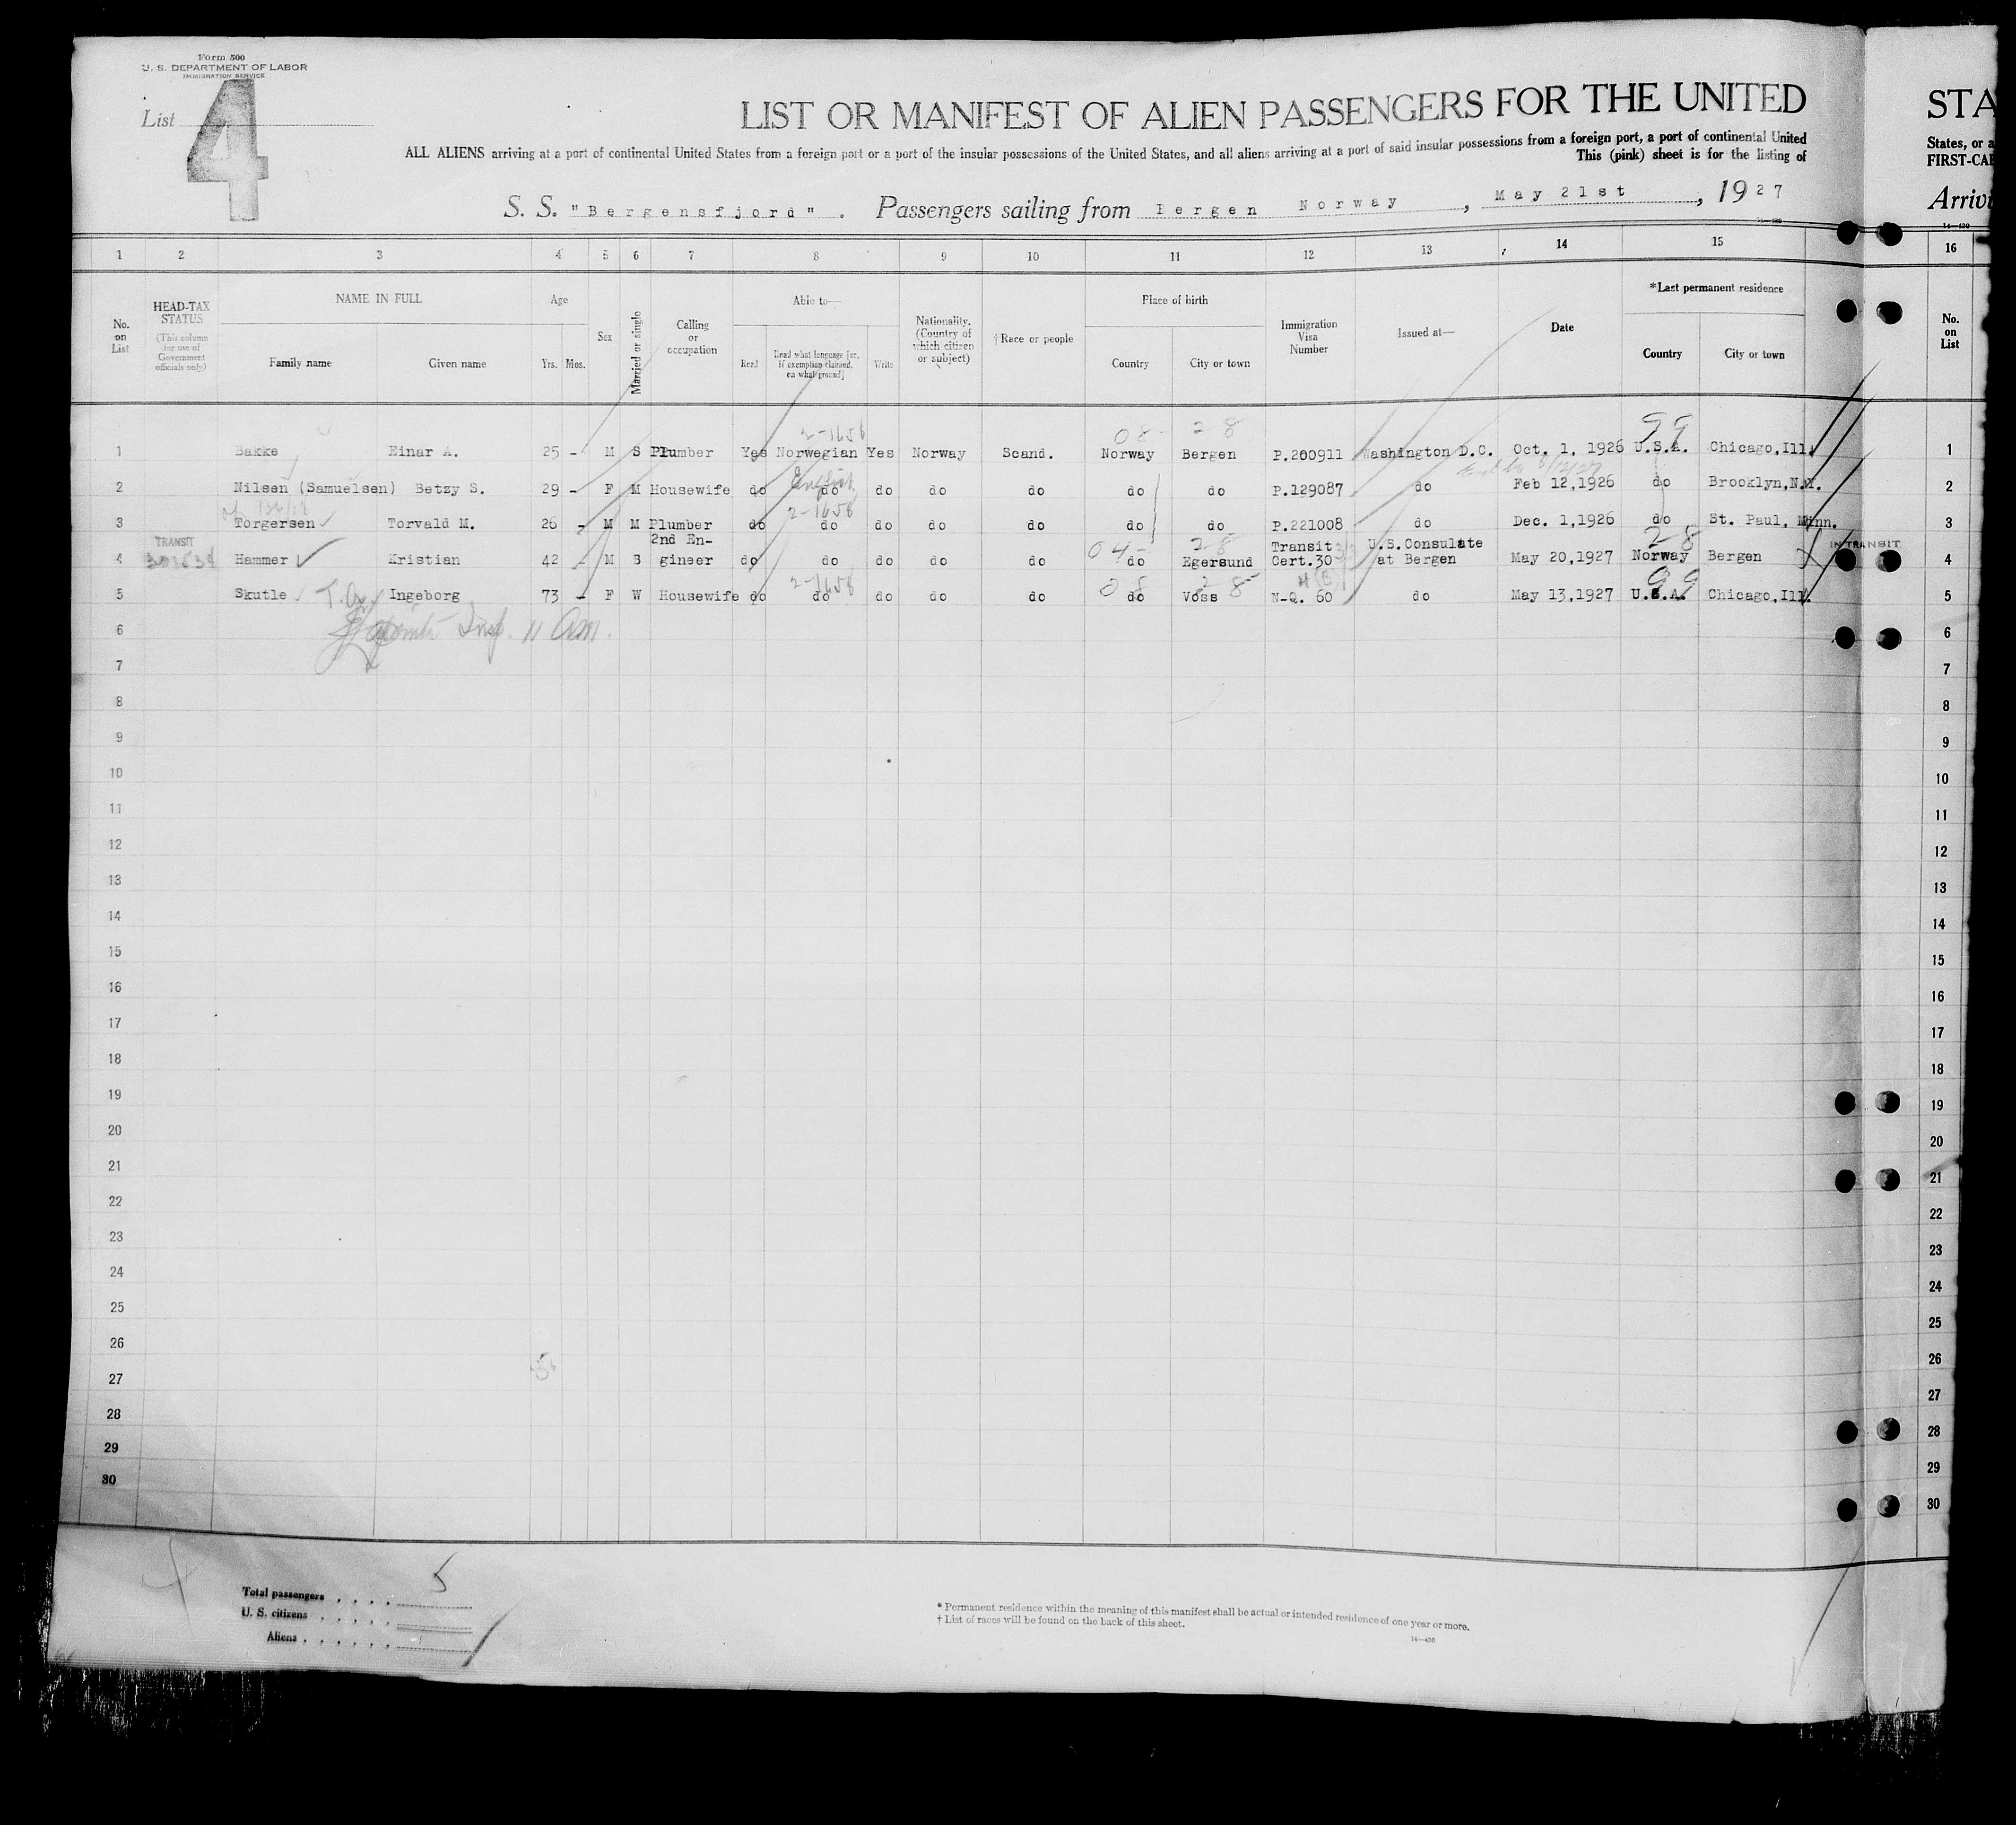 Form 500
U. S. DEPARTMENT OF LABOR
IMMIGRATION SERVICE
List 4
LIST OR MANIFEST OF ALIEN PASSENGERS FOR THE UNITED
STA
ALL ALIENS arriving at a port of continental United States from a foreign port or a port of the insular possessions of the United States, and all aliens arriving at a port of said insular possessions from a foreign port, a port of continental United
States, or a
This (pink) sheet is for the listing of
FIRST-CAB
S. S. "Bergensfjord". Passengers sailing from Bergen Norway, May 21st, 1927
Arrivi
14—430
1 2 3 4 5 6 7 8 9 10 11 12 13 14 15 16
No. on List
HEAD-TAX STATUS
(This column for use of Government officials only)
NAME IN FULL
Family name
Given name
Age
Yrs.
Mos.
Sex
Married or single
Calling or occupation
Able to—
Read
Read what language [or, if exemption claimed, on what ground]
Write
Nationality. (Country of which citizen or subject)
†Race or people
Place of birth
Country
City or town
Immigration Visa Number
Issued at—
Date
*Last permanent residence
Country
City or town
No. on List
2-1656 08- 28 99
1 Bakke Einar A. 25 - M S Plumber Yes Norwegian Yes Norway Scand. Norway Bergen P.200911 Washington D.C. Oct. 1, 1926 U.S.A. Chicago,Ill. 1
English
2 Nilsen (Samuelsen) Betzy S. 29 - F M Housewife do do do do do do do P.129087 do Feb 12,1926 do Brooklyn,N.Y. 2
2-1656
3 Torgersen Torvald M. 26 - M M Plumber do do do do do do do P.221008 do Dec. 1,1926 do St. Paul, Minn. 3
TRANSIT 2nd En- 04- 28 Transit U.S.Consulate 28 IN TRANSIT
4 Hammer Kristian 42 - M S gineer do do do do do do Egersund Cert.30 at Bergen May 20,1927 Norway Bergen 4
2-1656 08 28 99
5 Skutle Ingeborg 73 - F W Housewife do do do do do do Voss N-Q. 60 do May 13,1927 U.S.A. Chicago,Ill. 5
Insp. 11 Am.
6 6
7 7
8 8
9 9
10 10
11 11
12 12
13 13
14 14
15 15
16 16
17 17
18 18
19 19
20 20
21 21
22 22
23 23
24 24
25 25
26 26
27 27
28 28
29 29
30 30
Total passengers . . . . 5
U. S. citizens . . . . .
Aliens . . . . . .
* Permanent residence within the meaning of this manifest shall be actual or intended residence of one year or more.
† List of races will be found on the back of this sheet.
14—430